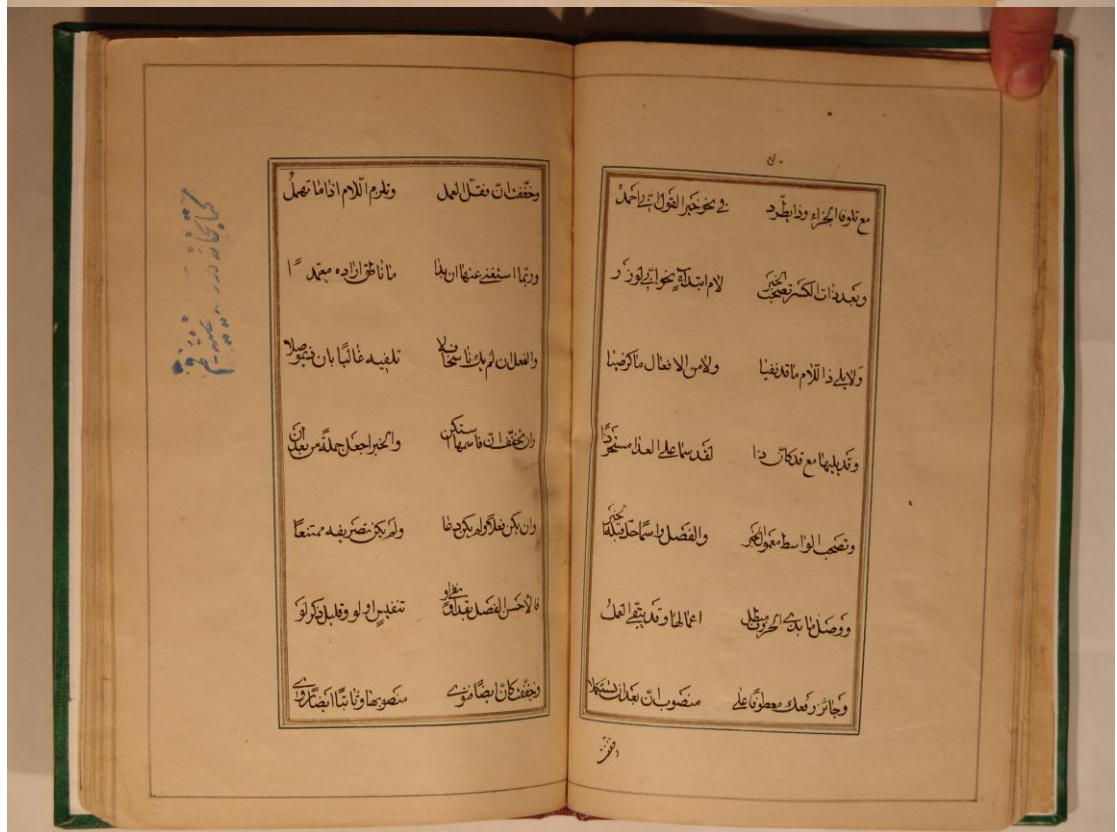 مع تلو فا الجزاء وذا يطّرد في نحو خير القول انّي احمدُ
وبعد ذات الكسر تصحب الخبر لام ابتداءٍ نحو انّي لوزر
ولا يلي ذا اللام ما قد نفيا ولا من الافعال ما كرضيا
وقد يليها مع قد كانّ ذا لقد سما على العدا مستحوذًا
وتصحب الواسط معمول الخبر والفصل واسمًا حلّ قبله الخبر
ووصل ما بذي الحروف مبطل اعمالها وقد يبقّى العملُ
وجائز رفعك معطوفًا على منصوب انّ بعد ان تستكملا
وخففت
وخفّفت انّ فقلّ العمل وتلزم اللّام اذا ما تهملُ
وربّما استغني عنها ان بدا ما ناطق اراده معتمدًا
والفعل ان لم يك ناسخًا فلا تلفيه غالبًا بان ذي موصلا
وان تخفّف انّ فاسمها استكن والخبر اجعل جملةً من بعد ان
وان يكن فعلًا ولم يكن دعا ولم يكن تصريفه ممتنعًا
فالاحسن الفصل بقد او نفي او تنفيسٍ او لو وقليل ذكر لو
وخفّفت كانّ ايضًا فنوي منصوبها وثابتًا ايضًا روي
کتابخانه